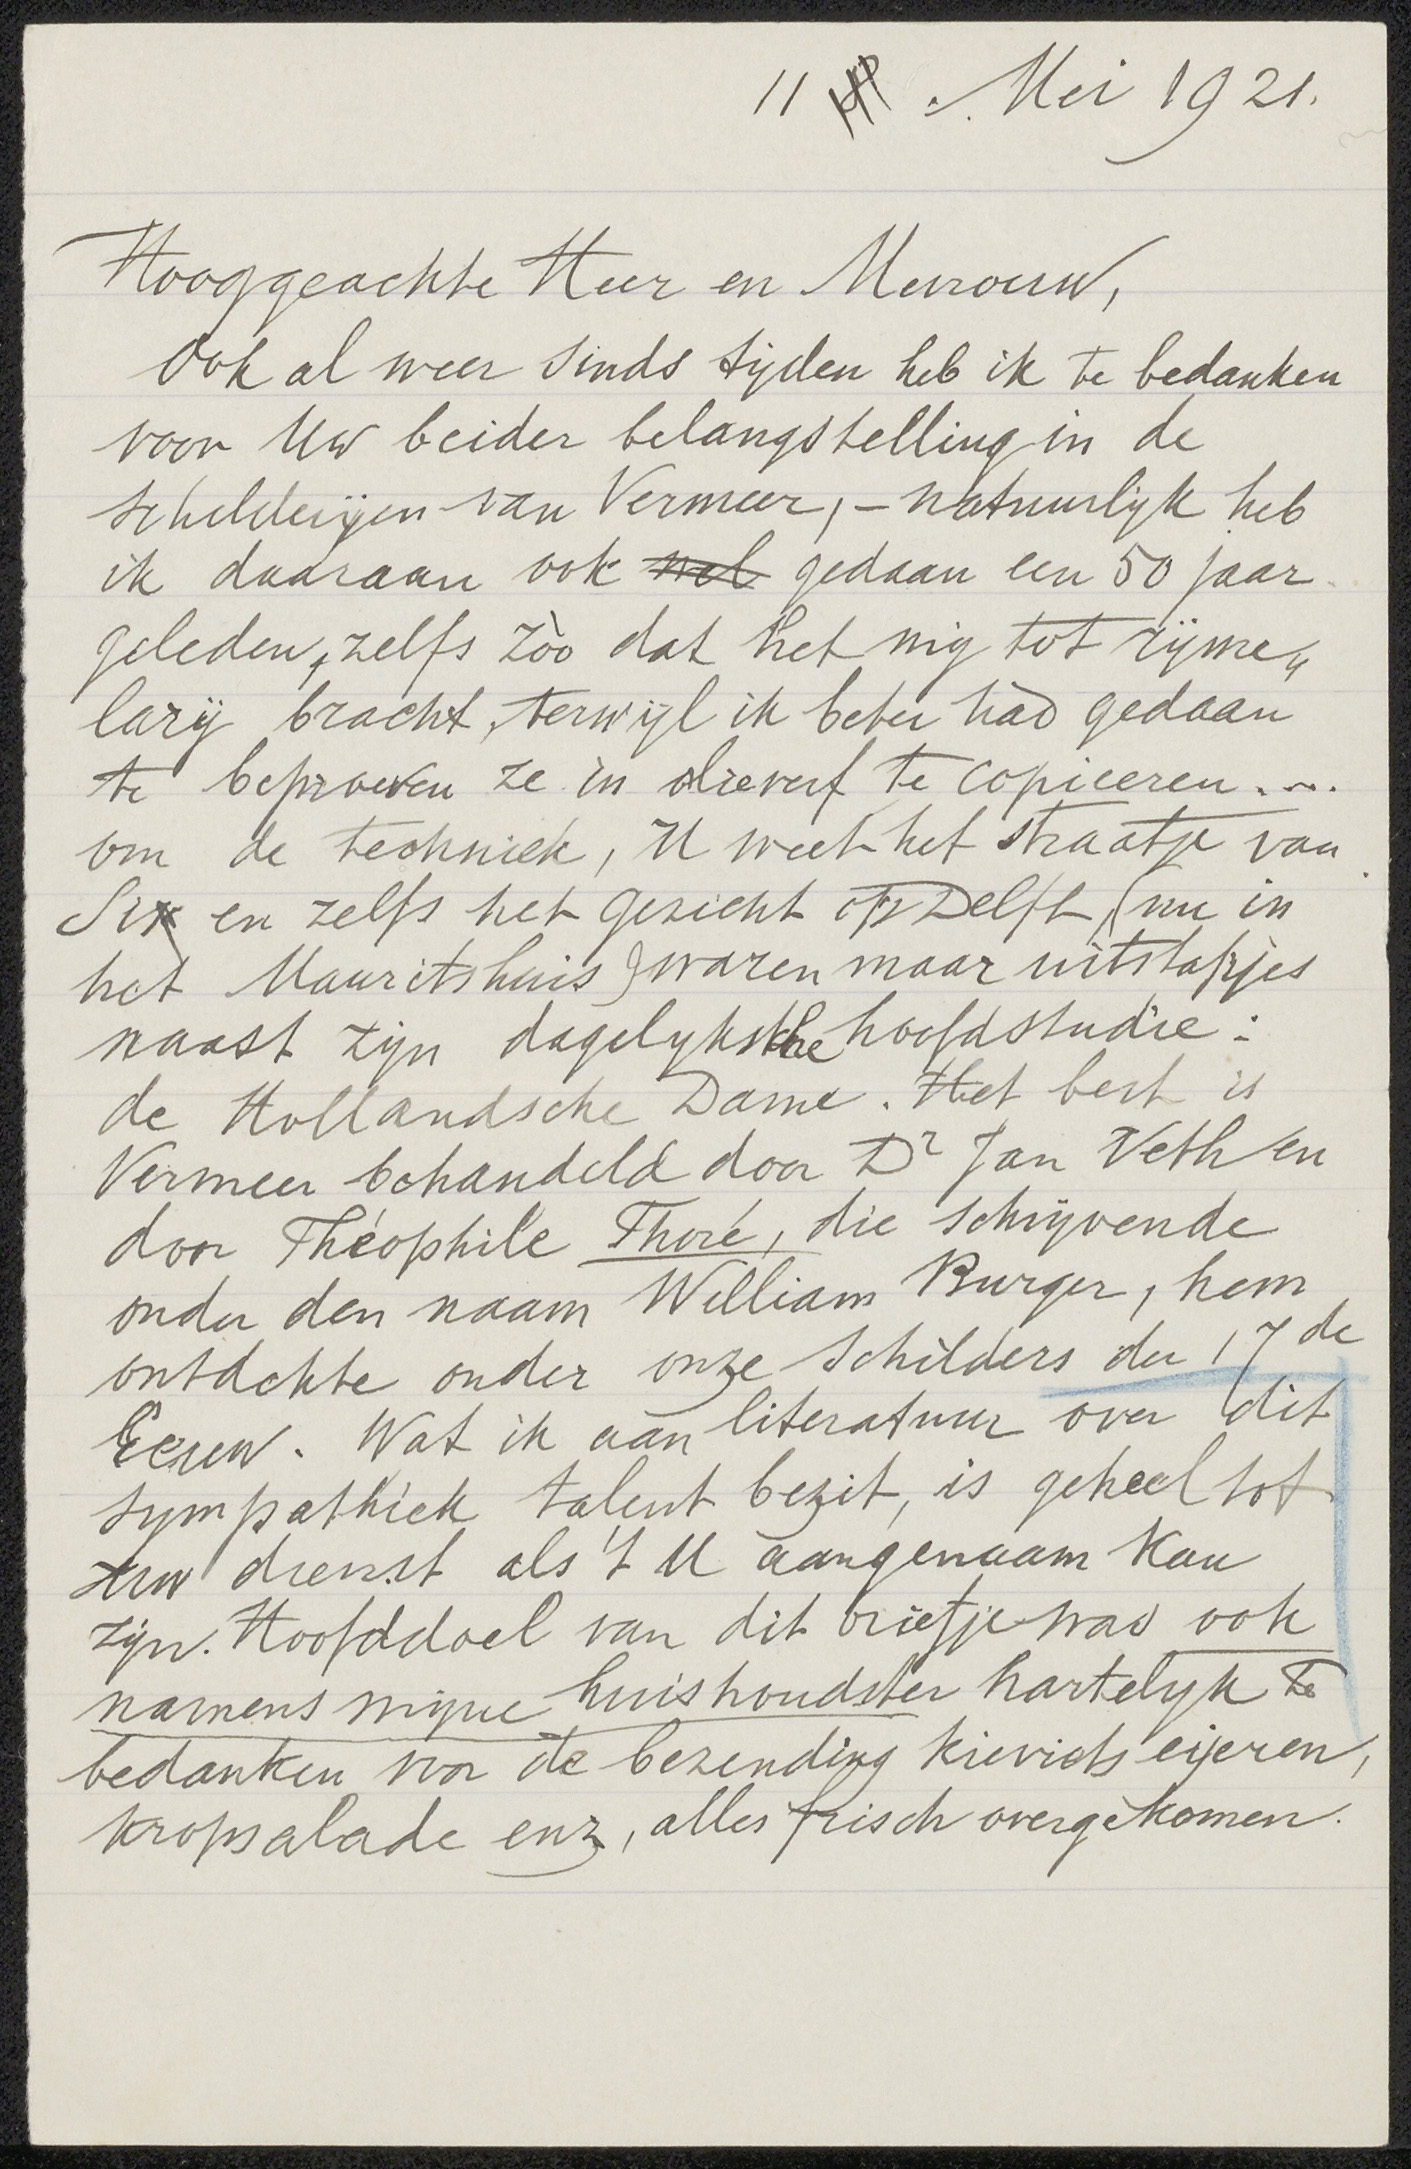 11 Mei 1921.
Hooggeachte Heer en Mevrouw,
Ook al weer sinds tijden heb ik te bedanken
voor Uw beider belangstelling in de
schilderijen van Vermeer, – natuurlijk heb
ik daaraan ook wel gedaan een 50 jaar
geleden, zelfs zòo dat het mij tot rijme„
larij bracht, terwijl ik beter had gedaan
te beproeven ze in olieverf te copieeren....
om de techniek, U weet het straatje van
Six en zelfs het gezicht op Delft (nu in
het Mauritshuis) waren maar uitstapjes
naast zijn dagelyksche hoofdstudie:
de Hollandsche Dame. Het best is
Vermeer behandeld door Dr Jan Veth en
door Théophile Thoré, die schrijvende
onder den naam William Burger, hem
ontdekte onder onze schilders der 17de
Eeuw. Wat ik aan literatuur over dit
sympathiek talent bezit, is geheel tot
uw dienst als 't U aangenaam kan
zijn. Hoofddoel van dit briefje was ook
namens mijne huishoudster hartelyk te
bedanken voor de bezending kievidseijeren,
kropsalade enz, alles frisch overgekomen.